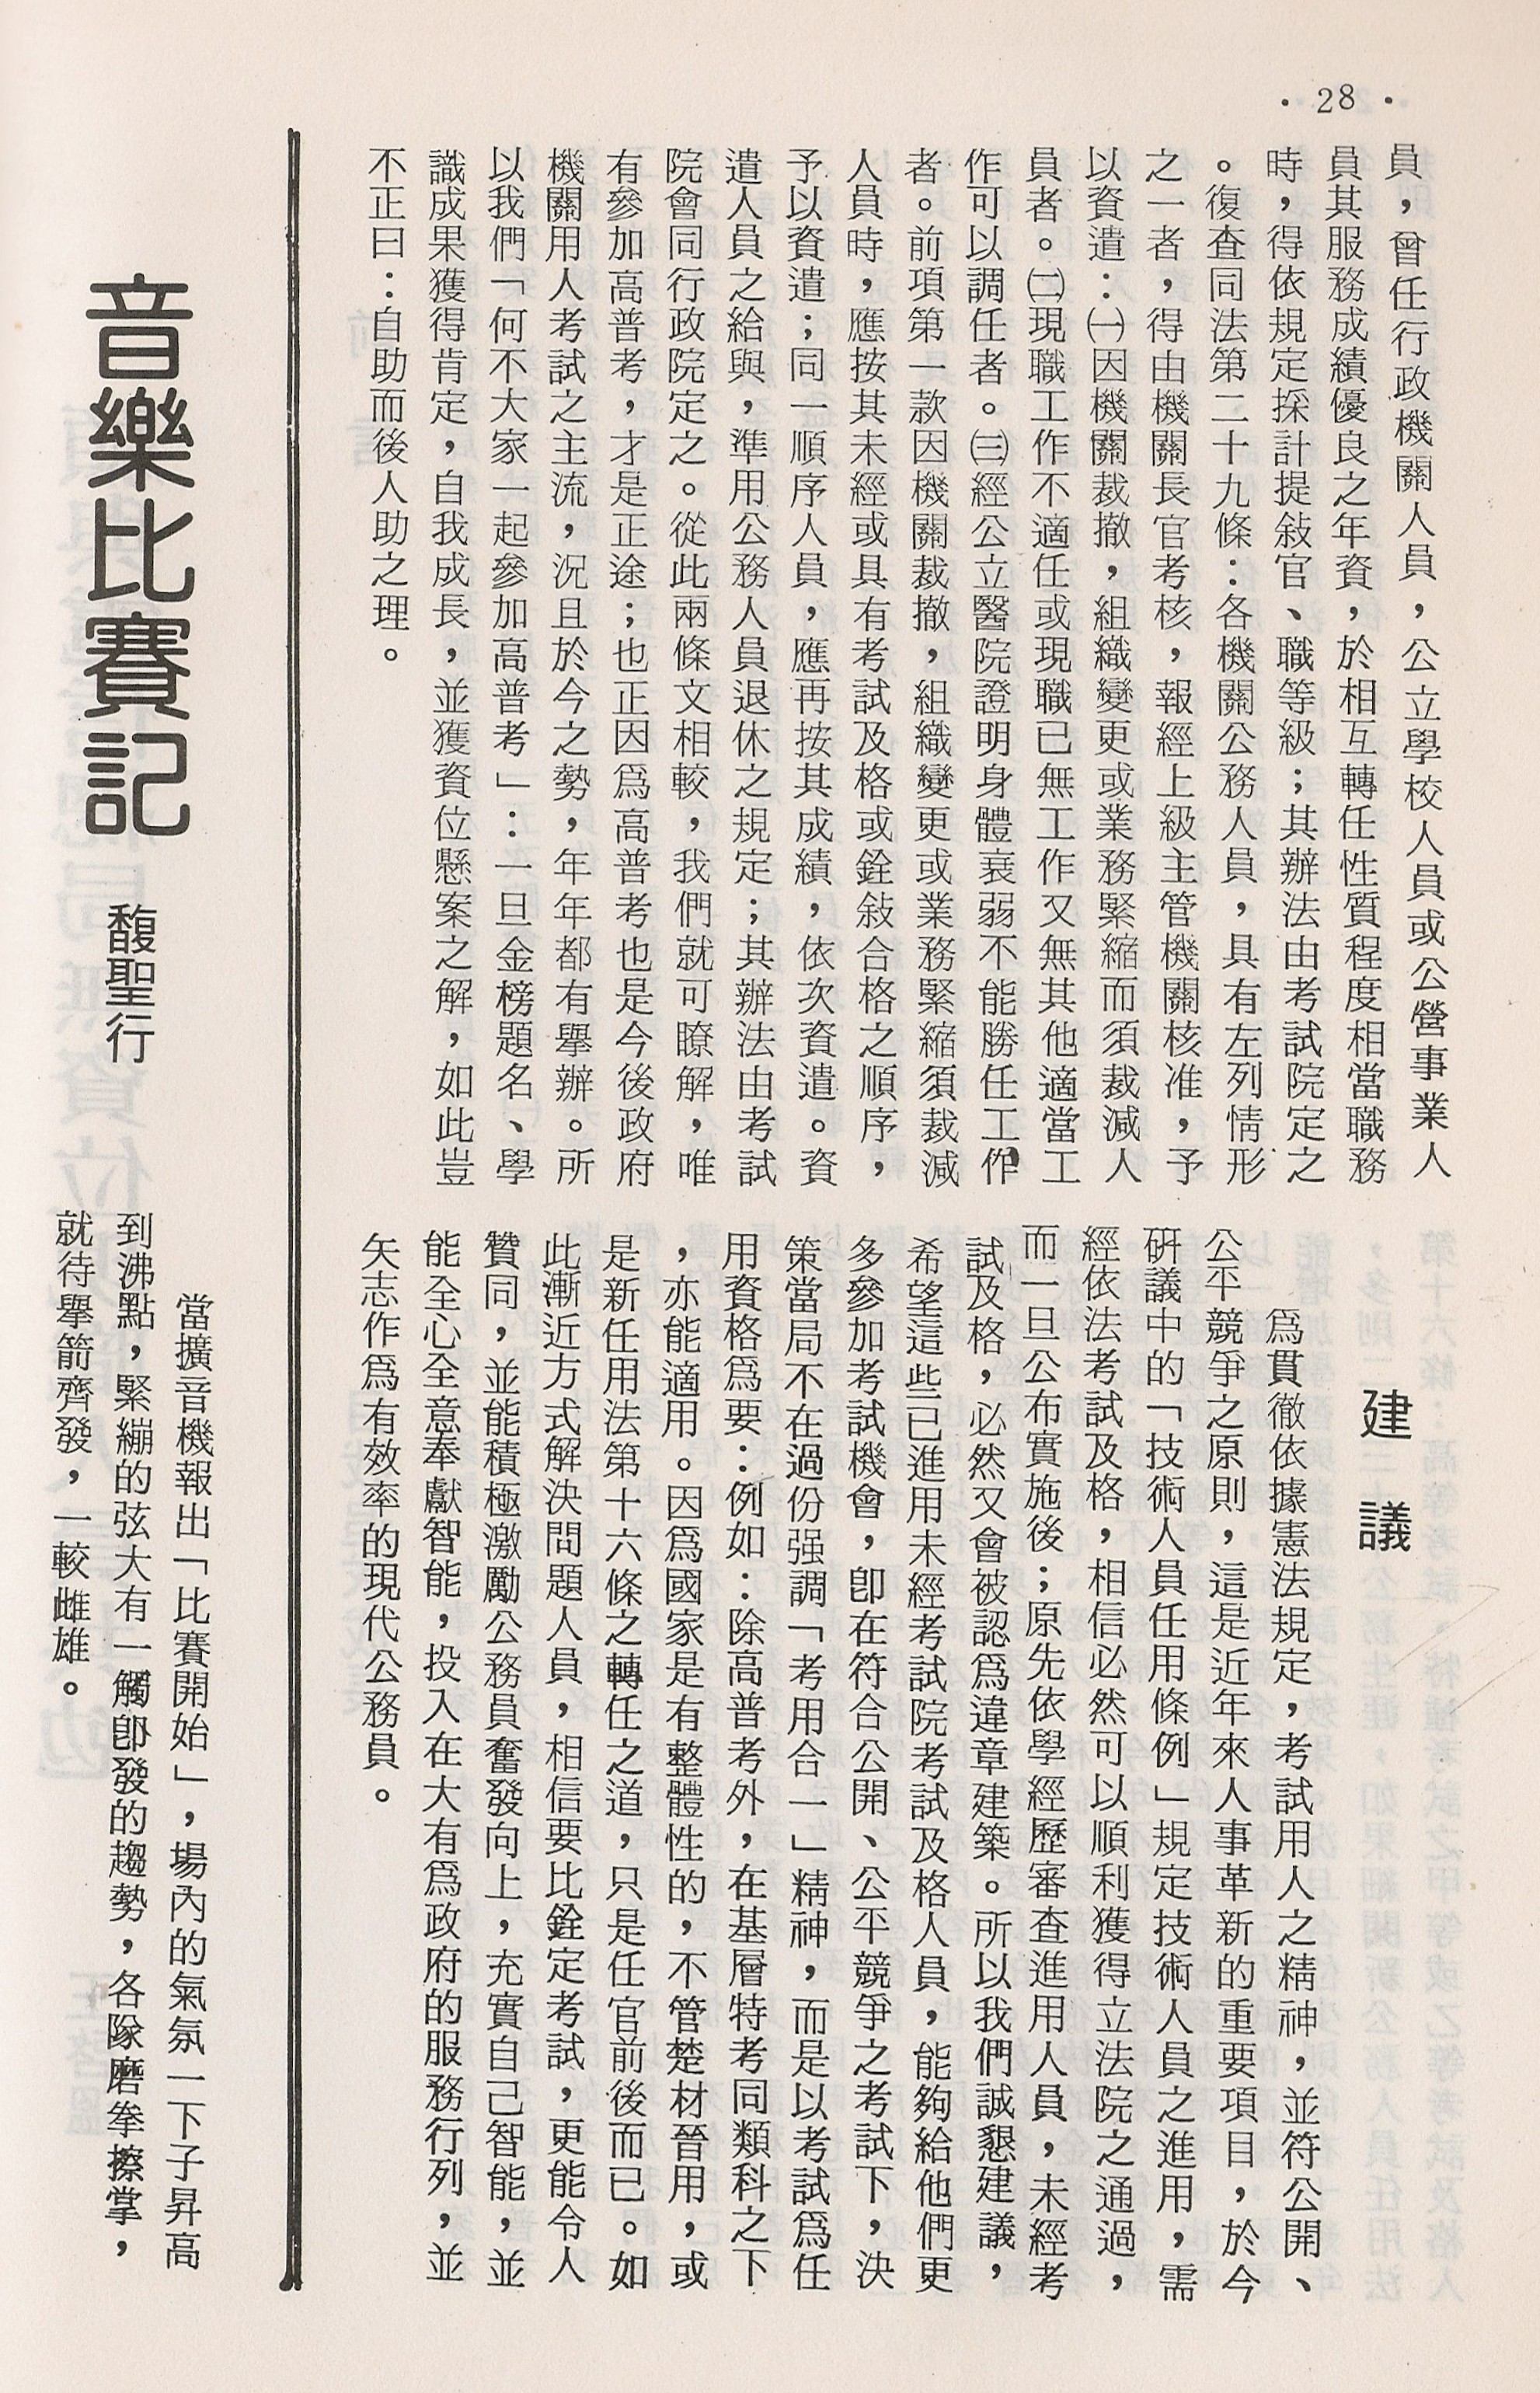 · 28 ·
員，曾任行政機關人員，公立學校人員或公營事業人
員其服務成績優良之年資，於相互轉任性質程度相當職務
時，得依規定採計提敍官、職等級；其辦法由考試院定之
。復查同法第二十九條：各機關公務人員，具有左列情形
之一者，得由機關長官考核，報經上級主管機關核准，予
以資遣：㈠因機關裁撤，組織變更或業務緊縮而須裁減人
員者。㈡現職工作不適任或現職已無工作又無其他適當工
作可以調任者。㈢經公立醫院證明身體衰弱不能勝任工作
者。前項第一款因機關裁撤，組織變更或業務緊縮須裁減
人員時，應按其未經或具有考試及格或銓敍合格之順序，
予以資遣；同一順序人員，應再按其成績，依次資遣。資
遣人員之給與，準用公務人員退休之規定；其辦法由考試
院會同行政院定之。從此兩條文相較，我們就可瞭解，唯
有參加高普考，才是正途；也正因爲高普考也是今後政府
機關用人考試之主流，況且於今之勢，年年都有舉辦。所
以我們「何不大家一起參加高普考」：一旦金榜題名、學
識成果獲得肯定，自我成長，並獲資位懸案之解，如此豈
不正曰：自助而後人助之理。
建議
爲貫徹依據憲法規定，考試用人之精神，並符公開、
公平競爭之原則，這是近年來人事革新的重要項目，於今
硏議中的「技術人員任用條例」規定技術人員之進用，需
經依法考試及格，相信必然可以順利獲得立法院之通過，
而一旦公布實施後；原先依學經歷審查進用人員，未經考
試及格，必然又會被認爲違章建築。所以我們誠懇建議，
希望這些已進用未經考試院考試及格人員，能夠給他們更
多參加考試機會，卽在符合公開、公平競爭之考試下，決
策當局不在過份强調「考用合一」精神，而是以考試爲任
用資格爲要：例如：除高普考外，在基層特考同類科之下
，亦能適用。因爲國家是有整體性的，不管楚材晉用，或
是新任用法第十六條之轉任之道，只是任官前後而已。如
此漸近方式解決問題人員，相信要比銓定考試，更能令人
贊同，並能積極激勵公務員奮發向上，充實自己智能，並
能全心全意奉獻智能，投入在大有爲政府的服務行列，並
矢志作爲有效率的現代公務員。
音樂比賽記
馥聖行
當擴音機報出「比賽開始」，場內的氣氛一下子昇高
到沸點，緊繃的弦大有一觸卽發的趨勢，各隊磨拳擦掌，
就待舉箭齊發，一較雌雄。